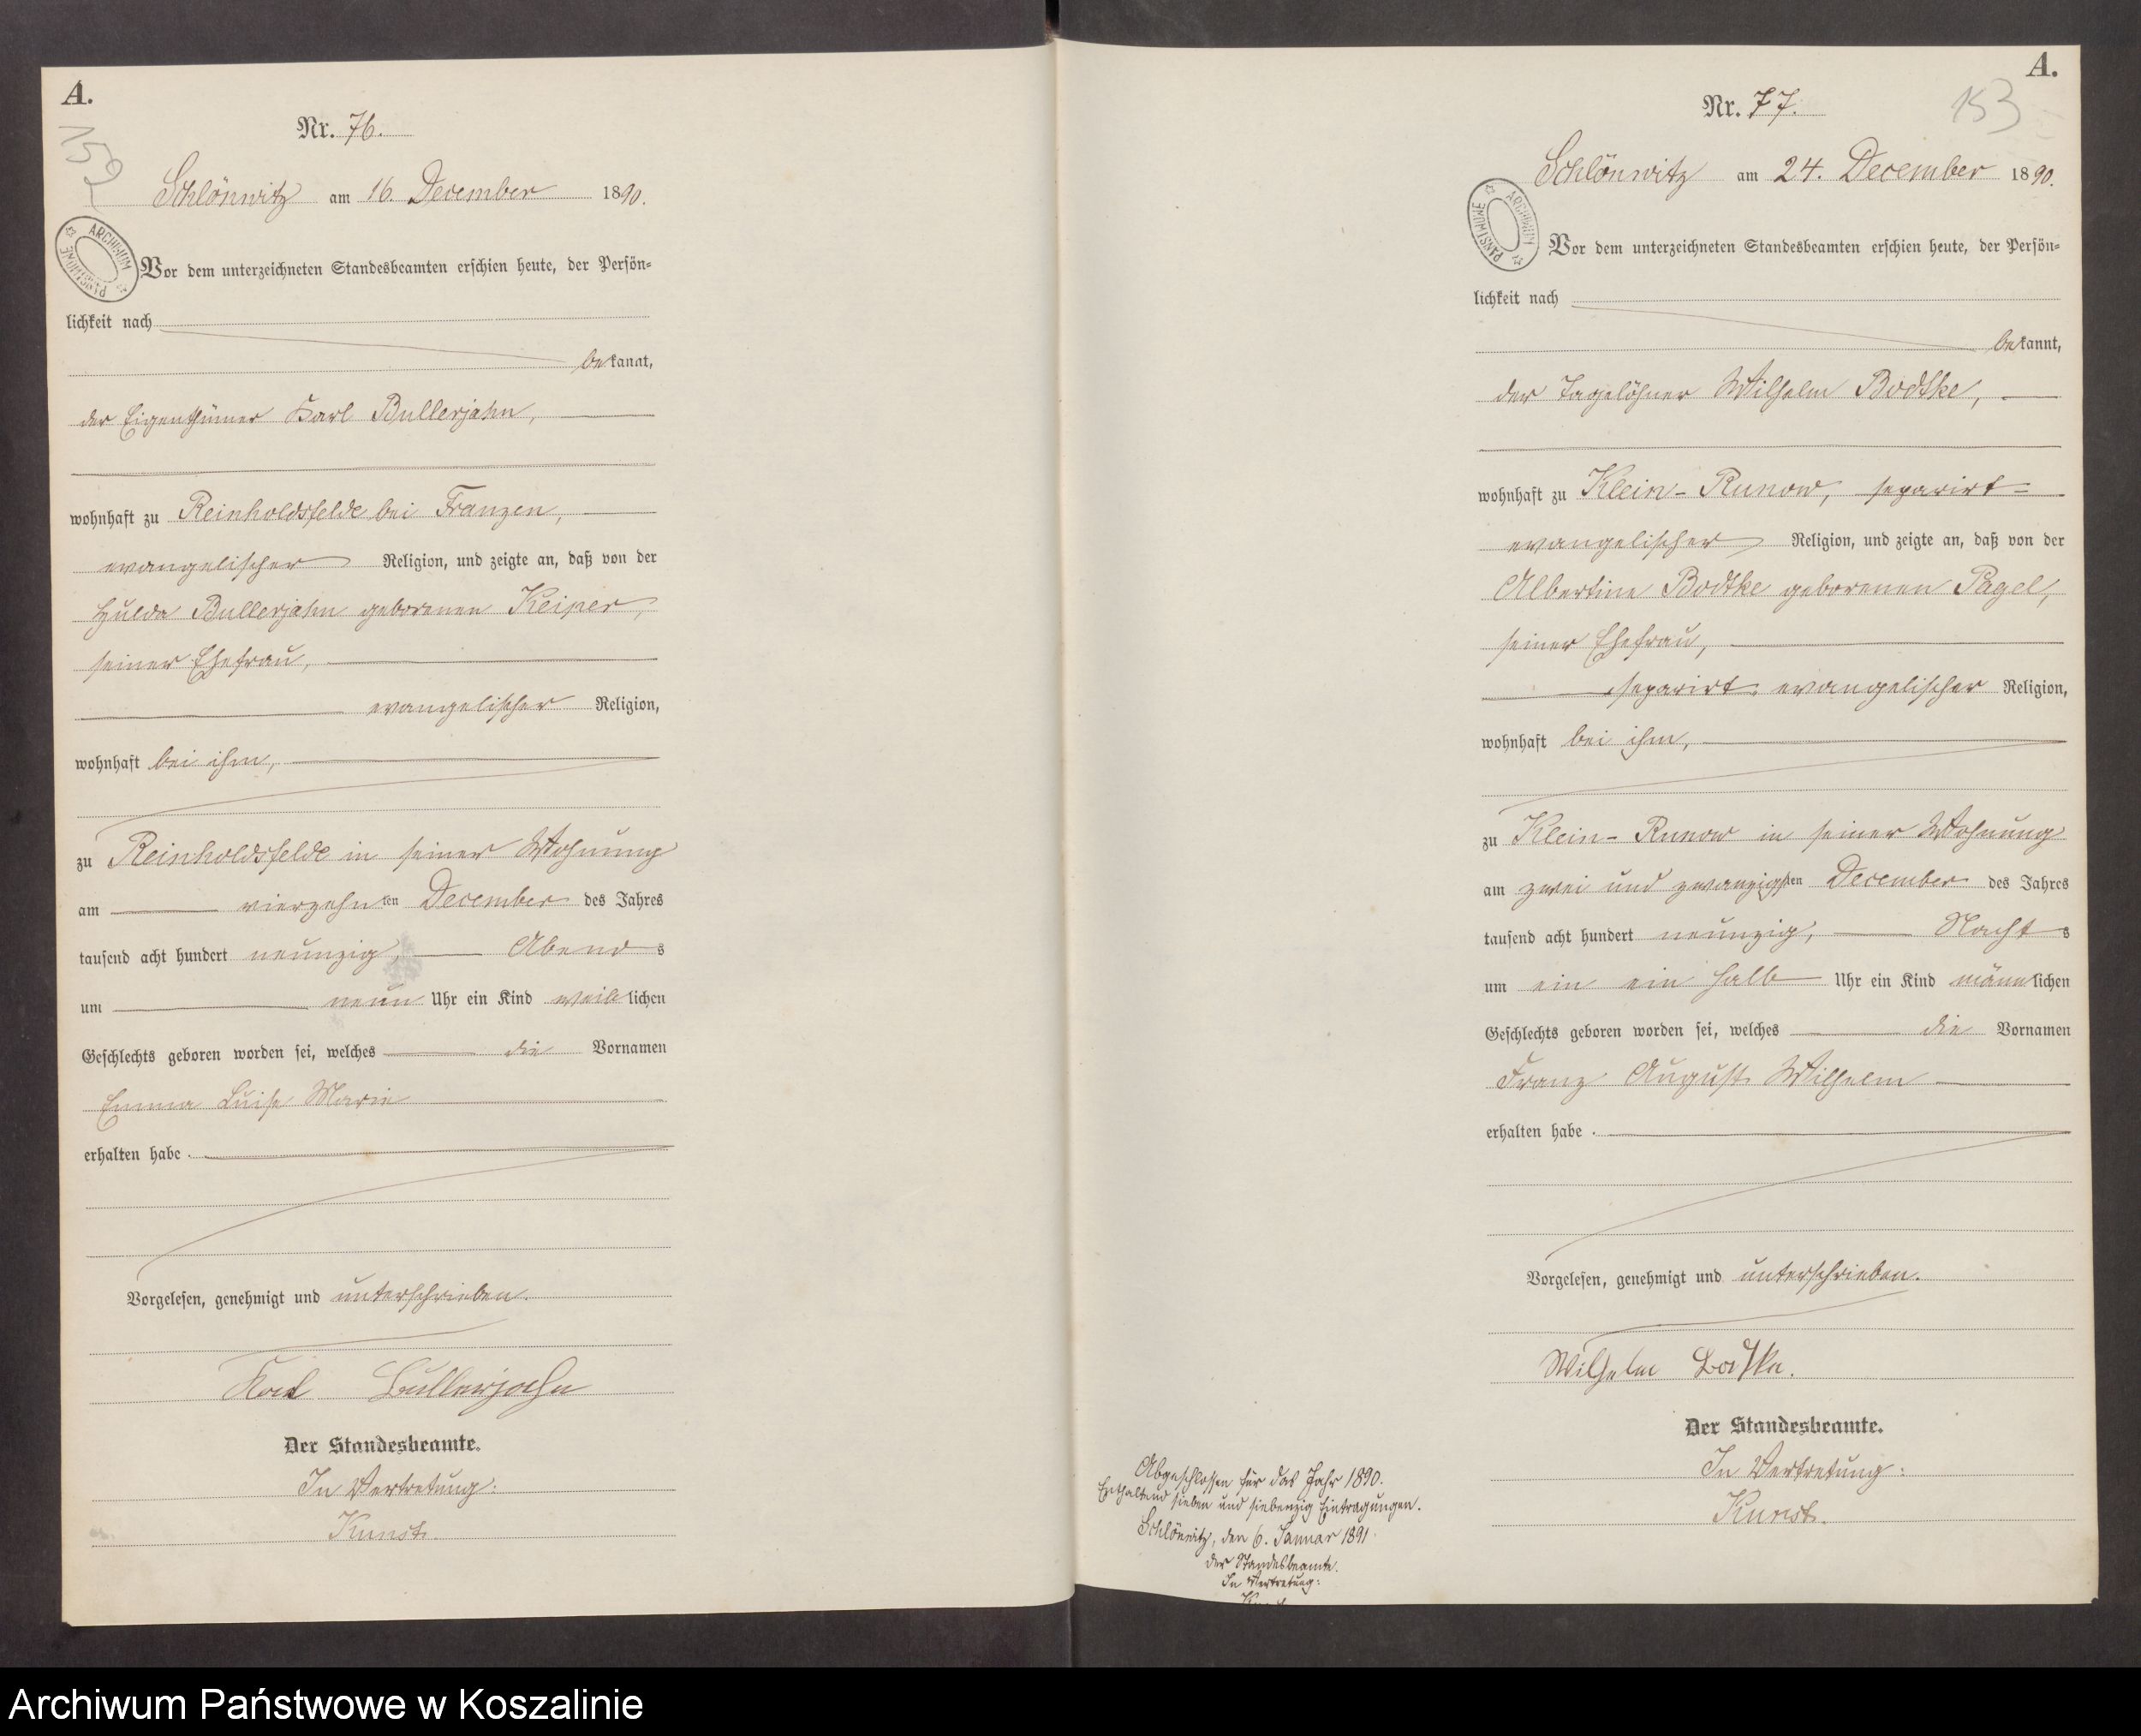 A.
152
Nr. 76.
Schlönwitz am 16. December 1890.
ARCHIWUM PAŃSTWOWE
Vor dem unterzeichneten Standesbeamten erschien heute, der Persön-
lichkeit nach
bekannt,
der Eigenthümer Karl Bullerjahn,
wohnhaft zu Reinholdsfelde bei Franzen,
evangelischer Religion, und zeigte an, daß von der
Hulda Bullerjahn geborenen Keiper,
seiner Ehefrau,
evangelischer Religion,
wohnhaft bei ihm,
zu Reinholdsfelde in seiner Wohnung
am vierzehnten December des Jahres
tausend acht hundert neunzig, Abends
um neun Uhr ein Kind weiblichen
Geschlechts geboren worden sei, welches die Vornamen
Emma Luise Marie
erhalten habe.
Vorgelesen, genehmigt und unterschrieben.
Karl Bullerjahn
Der Standesbeamte.
In Vertretung:
Kunst.
A.
153
Nr. 77.
Schlönwitz am 24. December 1890.
ARCHIWUM PAŃSTWOWE
Vor dem unterzeichneten Standesbeamten erschien heute, der Persön-
lichkeit nach
bekannt,
der Tagelöhner Wilhelm Bodtke,
wohnhaft zu Klein-Runow, separirt-
evangelischer Religion, und zeigte an, daß von der
Albertine Bodtke geborenen Pagel,
seiner Ehefrau,
separirt evangelischer Religion,
wohnhaft bei ihm,
zu Klein-Runow in seiner Wohnung
am zwei und zwanzigsten December des Jahres
tausend acht hundert neunzig, Nachts
um ein ein halb Uhr ein Kind männlichen
Geschlechts geboren worden sei, welches die Vornamen
Franz August Wilhelm
erhalten habe.
Vorgelesen, genehmigt und unterschrieben.
Wilhelm Bodtke.
Der Standesbeamte.
In Vertretung:
Kunst.
Abgeschlossen für das Jahr 1890.
Enthaltend sieben und siebenzig Eintragungen.
Schlönwitz, den 6. Januar 1891.
der Standesbeamte.
In Vertretung:
Archiwum Państwowe w Koszalinie